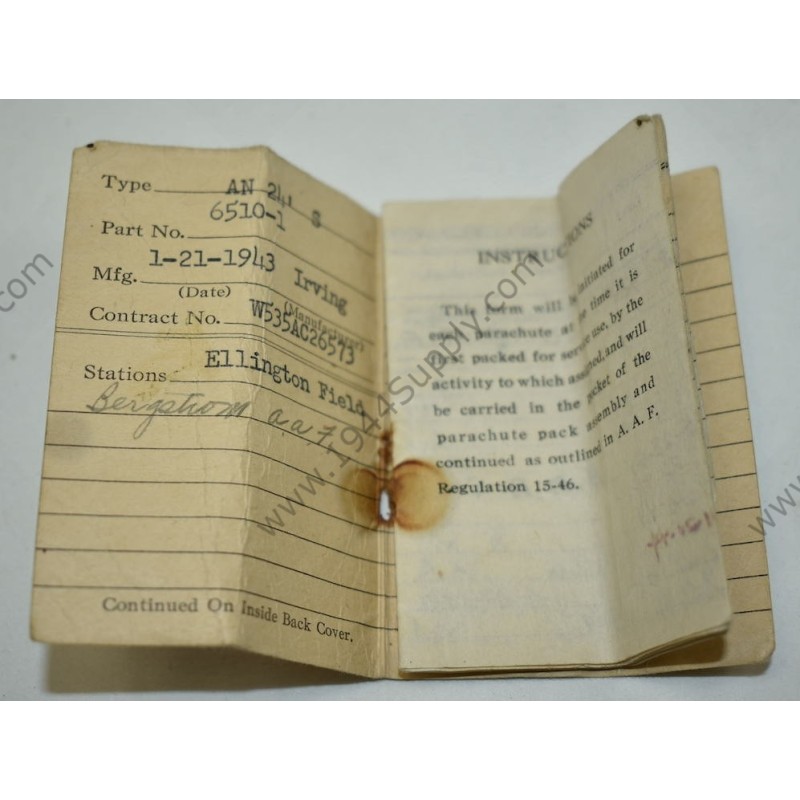 Type AN 24 S
Part No. 6510-1
Mfg. 1-21-1943 Irving
(Date) (Manufacturer)
Contract No. W535AC26573
Stations Ellington Field
Bergstrom a a f
Continued On Inside Back Cover.
INSTRUCTIONS
This form will be initiated for
each parachute at the time it is
first packed for service use, by the
activity to which assigned, and will
be carried in the pocket of the
parachute pack assembly and
continued as outlined in A. A. F.
Regulation 15-46.
www.1944Supply.com